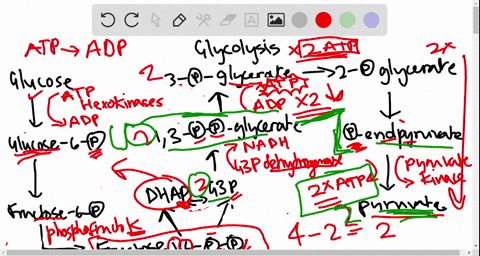 ATP → ADP
Glycolysis × 2 ATP
2 3-P-glycerate → 2-P glycerate
2x
Glucose
ATP
Hexokinases
ADP
ATP
ADP ×2
Glucose-6-P
2 1,3-P-P-glycerate
P-endpyruvate
NADH
G3P dehydrogenase
Pyruvate
Kinase
DHAP 2 G3P
2xATP
2
Pyruvate
Fructose-6-P
phosphofructoK
4-2 = 2